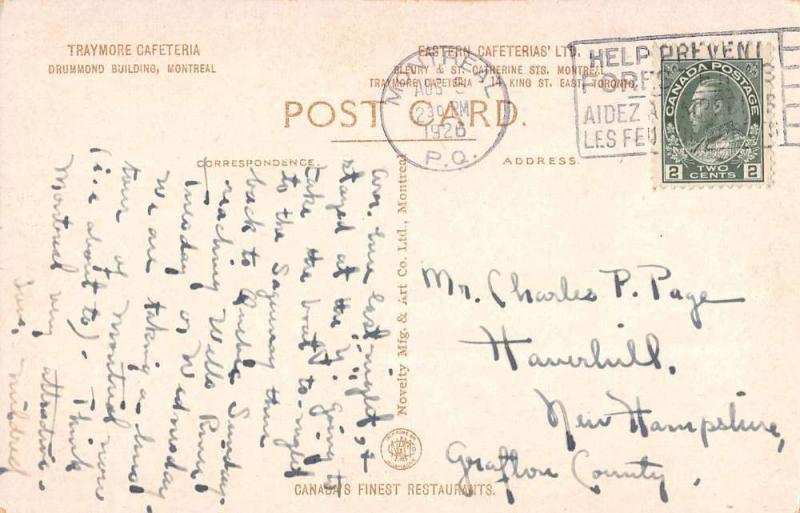 TRAYMORE CAFETERIA
DRUMMOND BUILDING, MONTREAL
EASTERN CAFETERIAS' LTD.
BLEURY & ST. CATHERINE STS. MONTREAL
TRAYMORE CAFETERIA 14 KING ST. EAST, TORONTO.
MONTREAL
AUG 5
230 PM
1926
P.Q.
HELP PREVENT
FORES
AIDEZ A
LES FEU
CANADA POSTAGE
2 TWO CENTS 2
POST CARD.
CORRESPONDENCE.
ADDRESS.
Arr. here last night, +
stayed at the Y. Going to
take the boat to-night
to the Saguenay then
back to Quebec Sunday.
reaching Wells River
Tuesday or Wednesday
We are taking a bus
tour of Montreal now
(i.e about to). Think
Montreal very attractive.
Mildred
Novelty Mfg. & Art Co. Ltd., Montreal
Mr. Charles P. Page
Haverhill,
New Hampshire,
Grafton County.
CANADA'S FINEST RESTAURANTS.